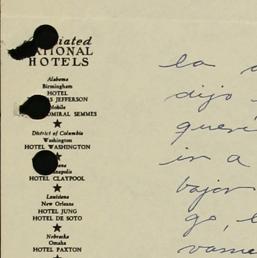 NATIONAL
HOTELS
Alabama
Birmingham
HOTEL
JEFFERSON
Mobile
ADMIRAL SEMMES
District of Columbia
Washington
HOTEL WASHINGTON
HOTEL CLAYPOOL
Louisiana
New Orleans
HOTEL JUNG
HOTEL DE SOTO
Nebraska
Omaha
HOTEL PAXTON
la
dijo
in a
bajon
go,